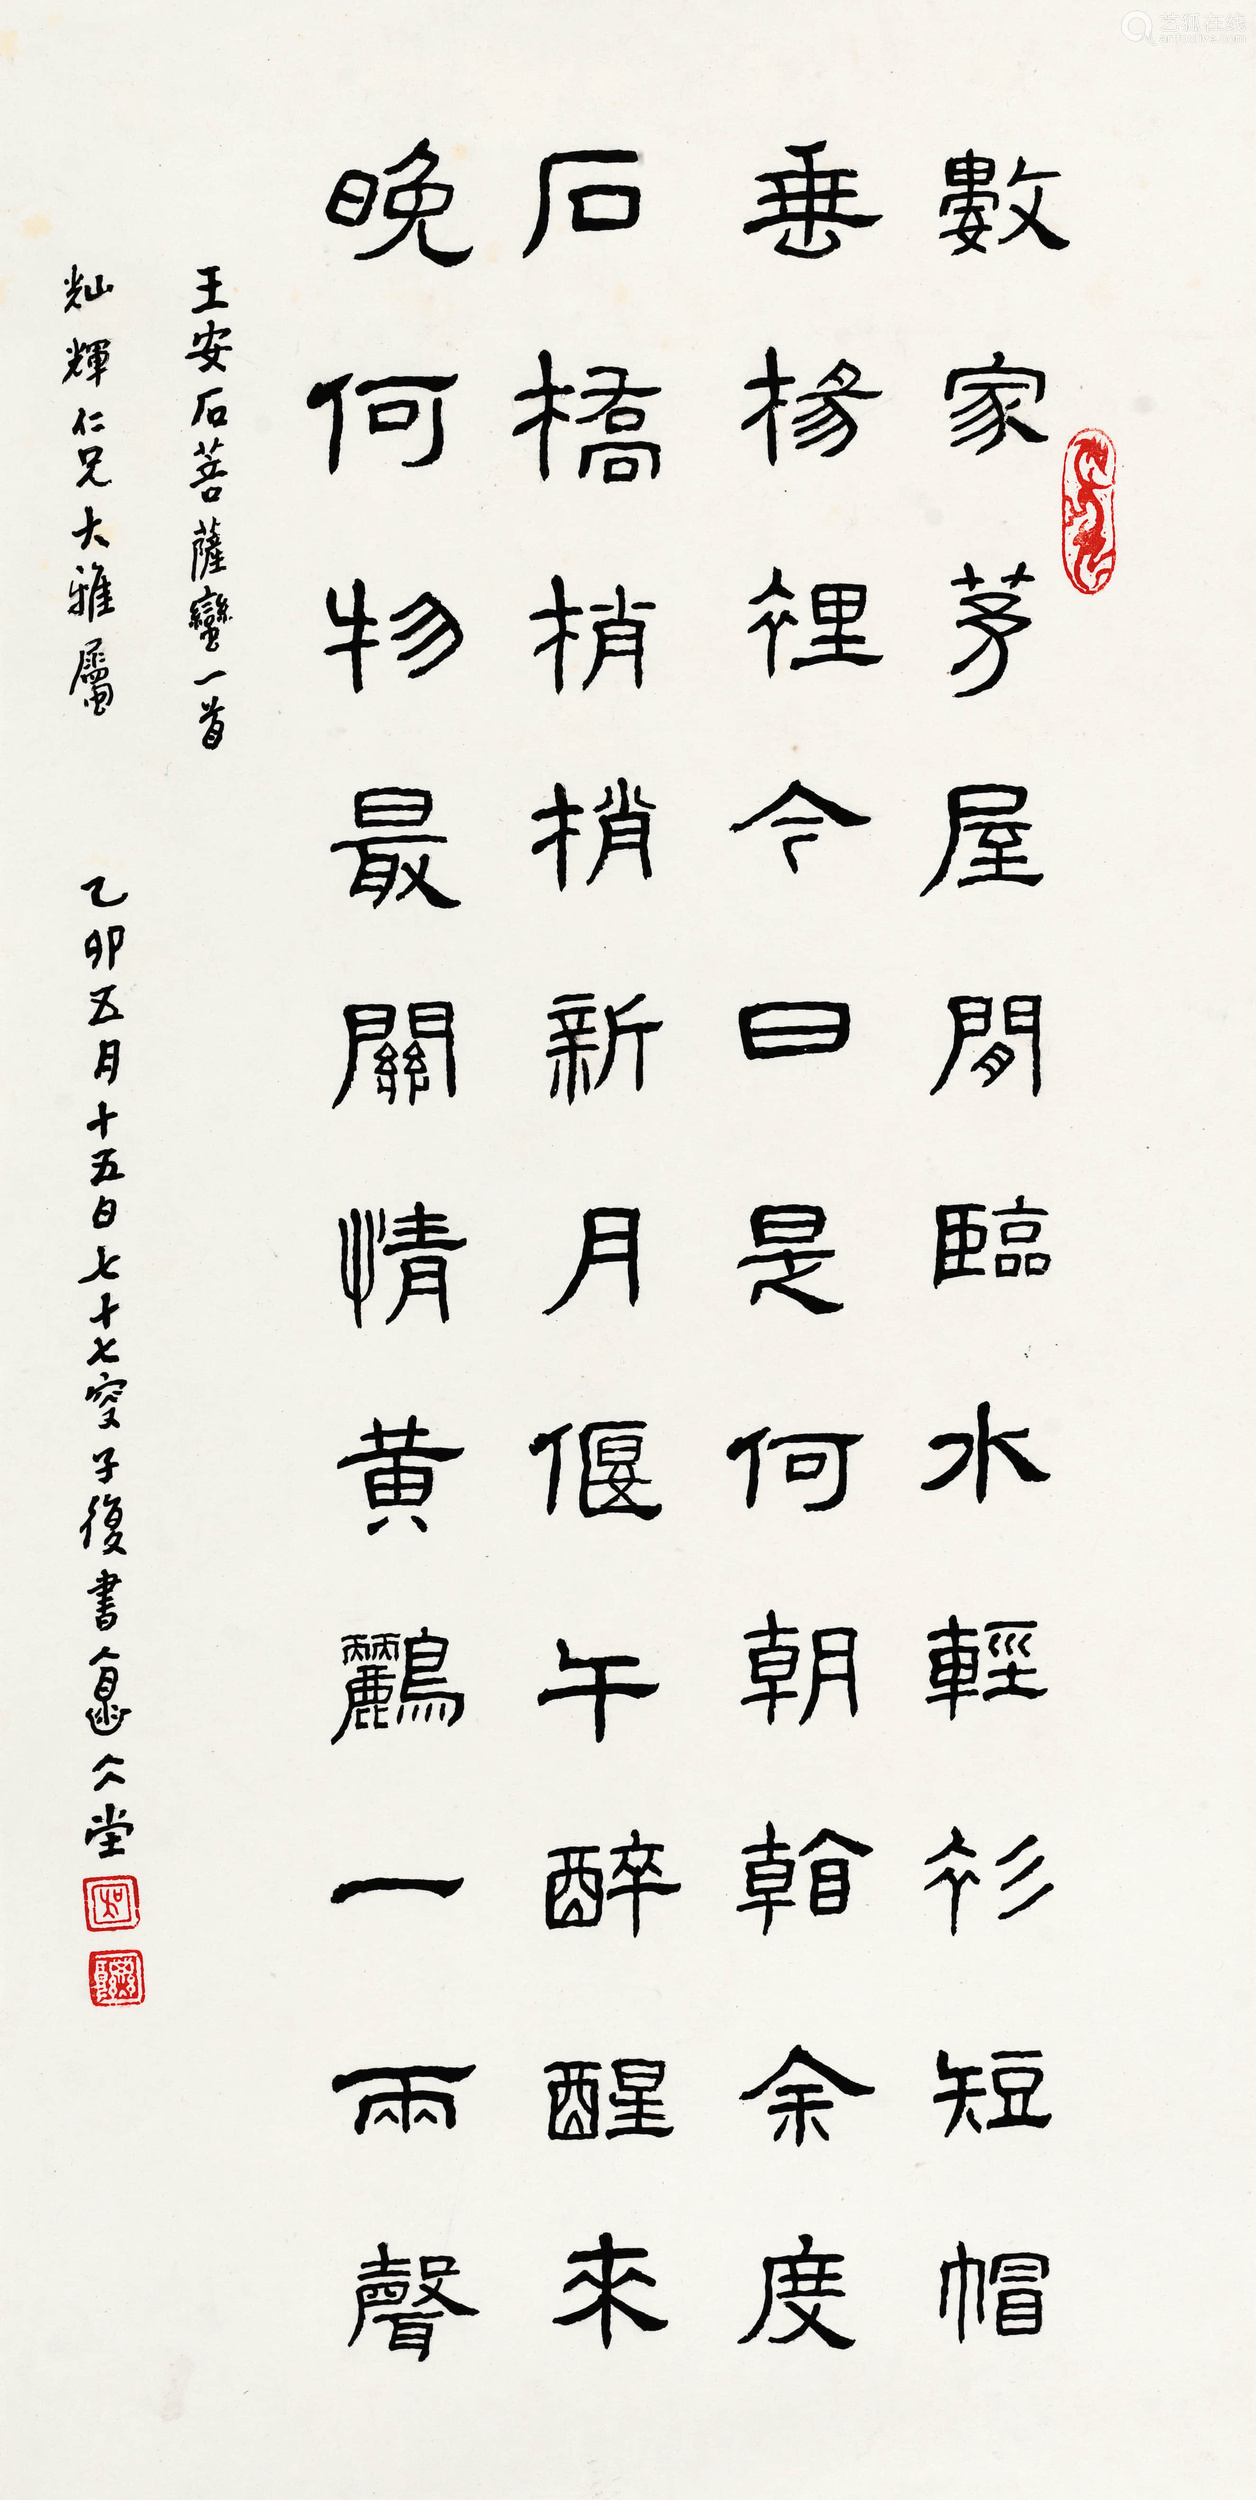 數家茅屋閒臨水輕衫短帽
垂楊裡今日是何朝看余度
石橋梢梢新月偃午醉醒來
晚何物最關情黃鸝一兩聲
王安石菩薩蠻一首
灿輝仁兄大雅屬
乙卯五月十五日七十七叟子復書 堂
艺狐在线
artfoxlive.com